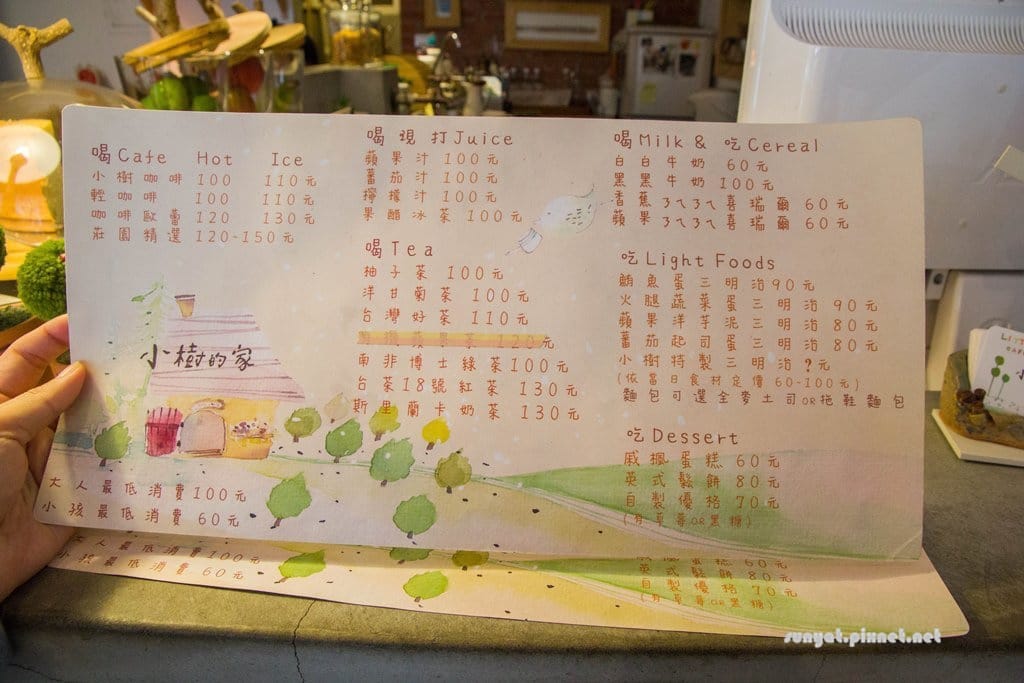 喝Cafe Hot Ice
小樹咖啡 100 110元
輕咖啡 100 110元
咖啡歐蕾 120 130元
莊園精選 120-150元
小樹的家
大人最低消費100元
小孩最低消費60元
喝現打Juice
蘋果汁 100元
蕃茄汁 100元
檸檬汁 100元
果醋冰茶 100元
喝Tea
柚子茶 100元
洋甘菊茶 100元
台灣好茶 110元
120元
南非博士綠茶100元
台茶18號紅茶 130元
斯里蘭卡奶茶 130元
喝Milk & 吃Cereal
白白牛奶 60元
黑黑牛奶 100元
香蕉ㄋㄟㄋㄟ喜瑞爾 60元
蘋果ㄋㄟㄋㄟ喜瑞爾 60元
吃Light Foods
鮪魚蛋三明治90元
火腿蔬菜蛋三明治 90元
蘋果洋芋泥三明治 80元
蕃茄起司蛋三明治 80元
小樹特製三明治?元
(依當日食材定價60-100元)
麵包可選全麥土司OR拖鞋麵包
吃Dessert
戚楓蛋糕 60元
英式鬆餅 80元
自製優格 70元
(有草莓OR黑糖)
大人最低消費100元
小孩最低消費 60元
60元
英式鬆餅 80元
自製優格 70元
(有草莓OR黑糖)
sunyat.pixnet.net